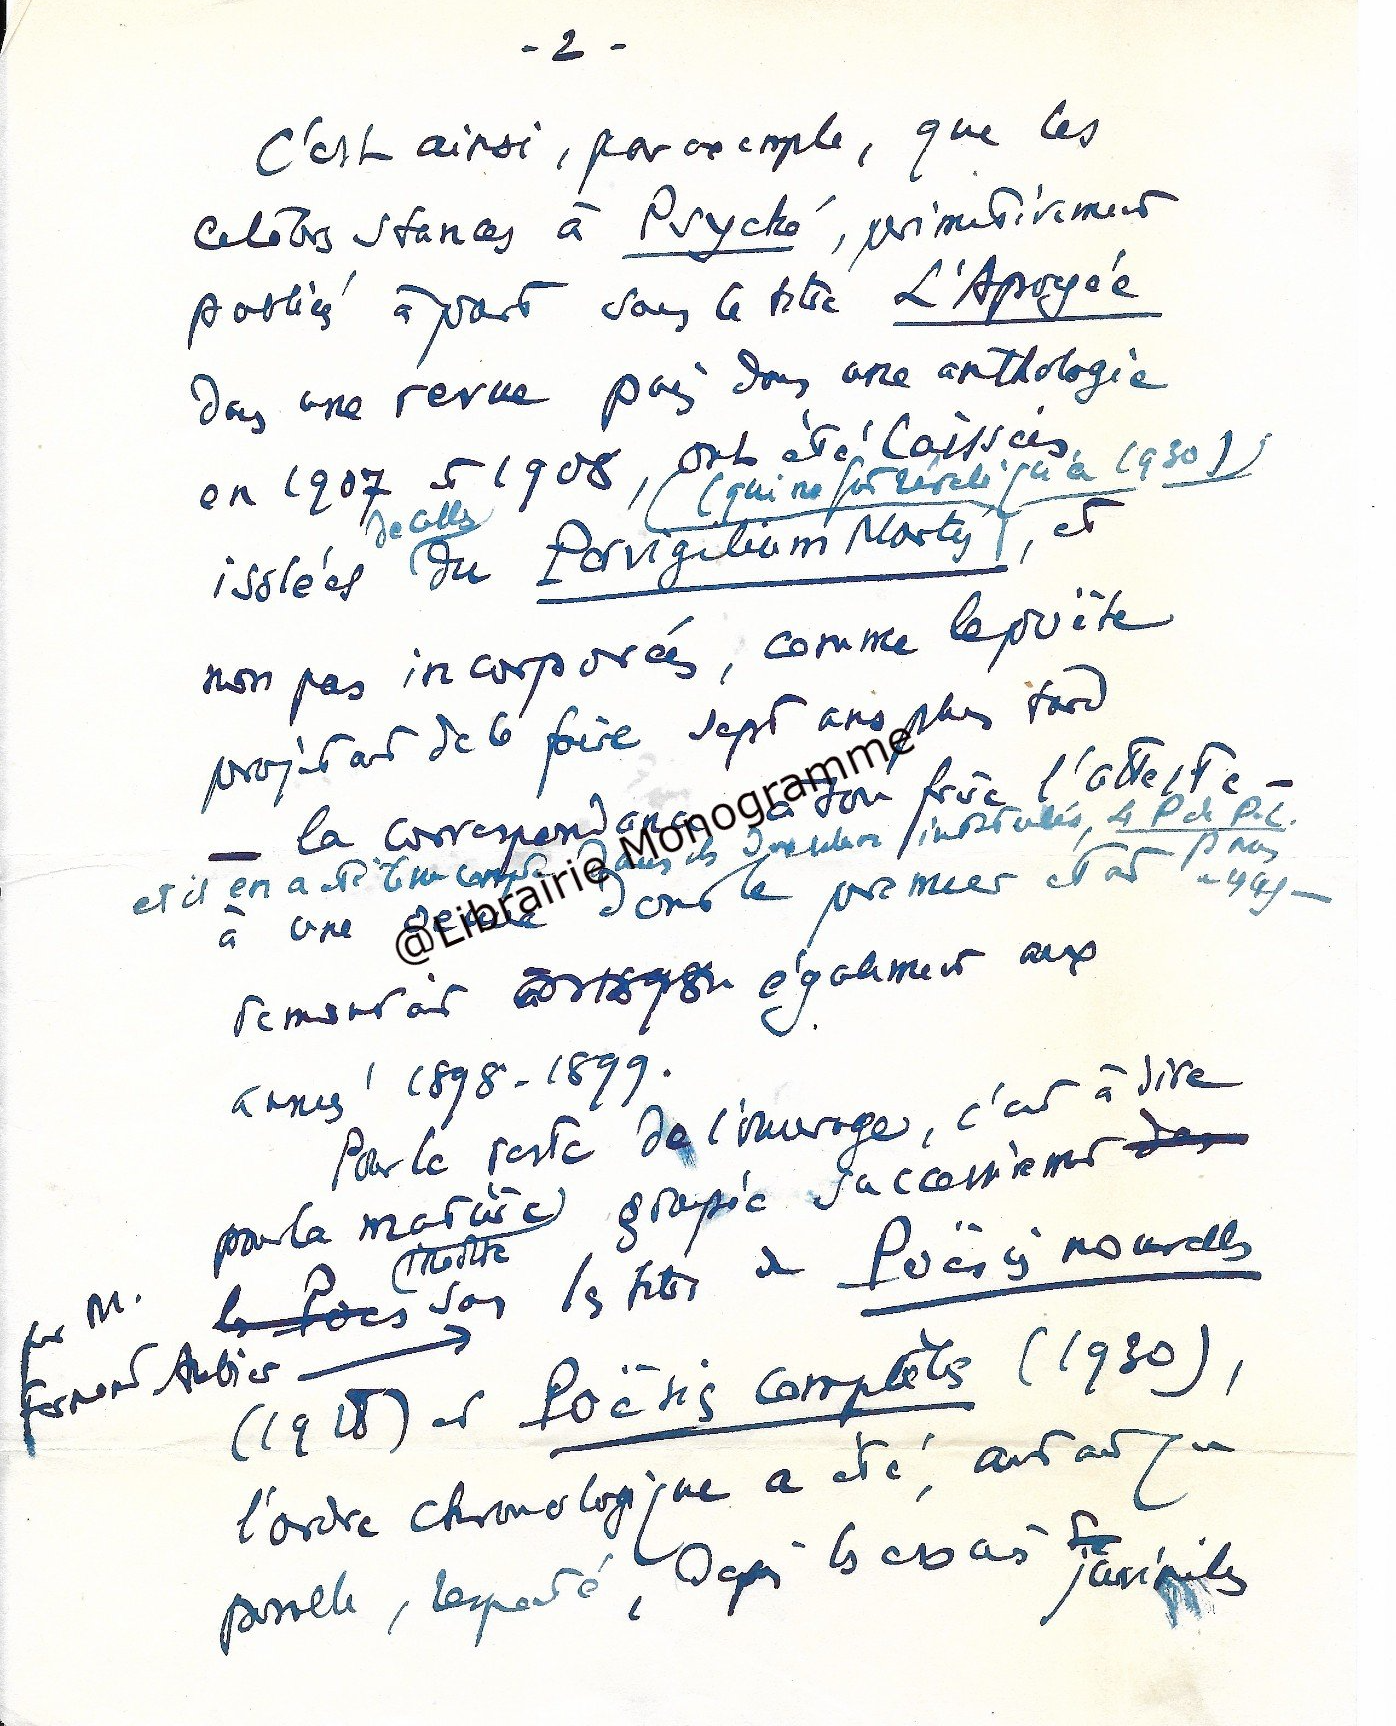 - 2 -
C'est ainsi, par exemple, que les
célèbres stances à Psyché, primitivement
publiées à part sous le titre L'Apogée
dans une revue puis dans une anthologie
en 1907 et 1908, ont été laissées
(qui ne fut révélé qu'à 1930)
isolées de celles du Pervigilium Mortis, et
non pas incorporées, comme le poète
projetait de le faire sept ans plus tard
— la correspondance à son frère l'atteste —
et il en a été tenu compte dans
à une œuvre dont le premier état
remontait également aux
années 1898-1899.
Pour le reste de l'ouvrage, c'est à dire
pour la matière groupée successivement des
inédite
les Poës sous les titres de Poësies nouvelles
par M.
Fernand Aubier
(1918) et Poësies complètes (1930),
l'ordre chronologique a été, autant que
possible, respecté, depuis les essais juvéniles
@Librairie Monogramme